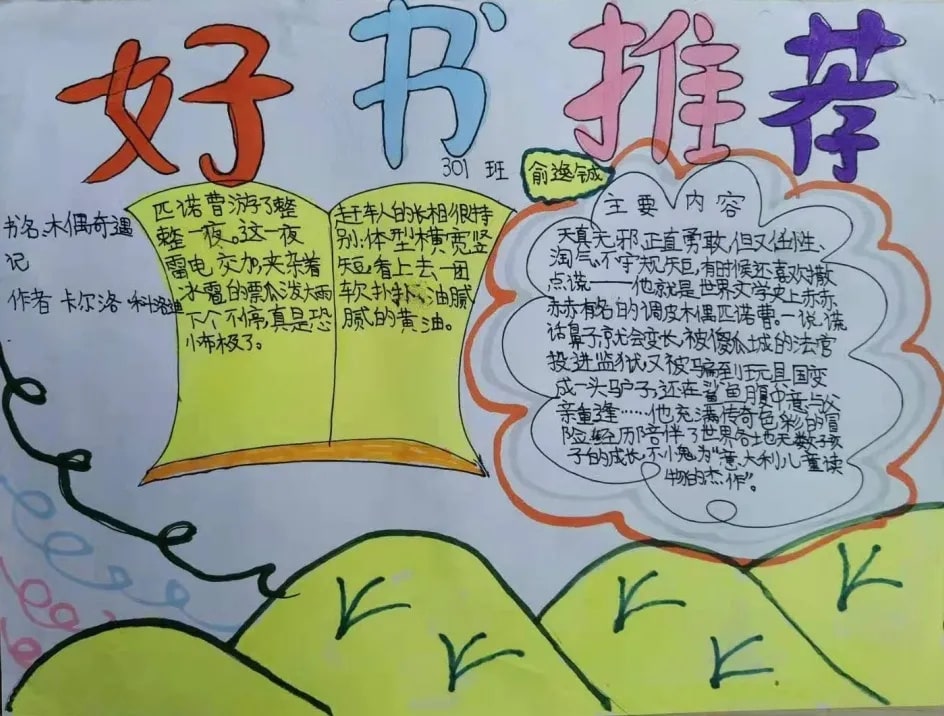 好书推荐
301班
俞逸铖
书名:木偶奇遇
记
作者 卡尔洛·科洛迪
匹诺曹游了整
整一夜。这一夜
雷电交加,夹杂着
冰雹的瓢瓜泼大雨
下个不停,真是恐
怖极了。
赶车人的长相很特
别:体型横宽竖
短,看上去一团
软扑扑、油腻
腻的黄油。
主要内容
天真无邪、正直勇敢,但又任性、
淘气、不守规矩,有时候还喜欢撒
点谎——他就是世界文学史上赤赤
赤赤有名的调皮木偶匹诺曹。一说谎
话鼻子就会变长,被傻瓜城的法官
投进监狱,又被骗到玩具国变
成一头驴子,还在鲨鱼腹中意与父
亲重逢……他充满传奇色彩的冒
险经历陪伴了世界各地无数孩
子的成长,不小鬼为“意大利儿童读
物的杰作”。